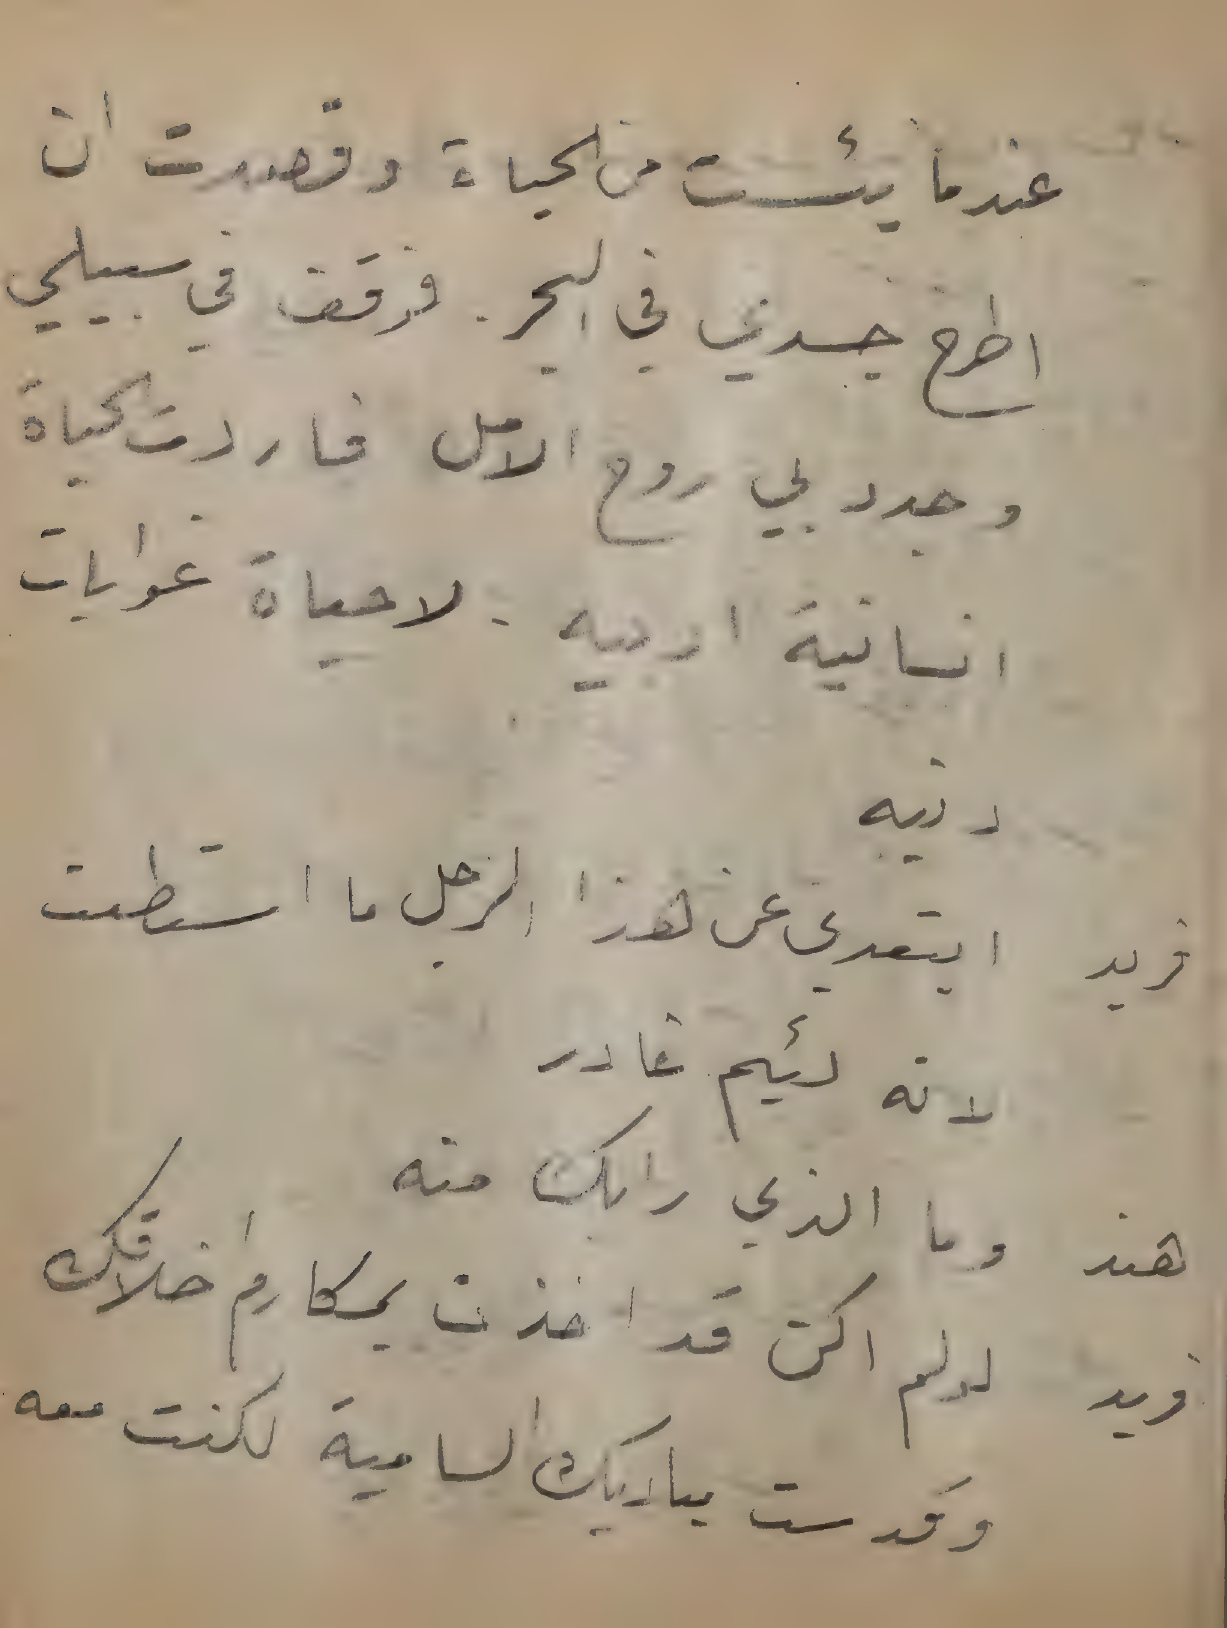 عندما يئست من الحياة وقصدت ان
اطرح جسدي في البحر . فوقف في سبيلي
وجدد لي روح الامل فاردت الحياة
انسانية ادبيه - لا حياة غوايات
دنيه
فريد ابتعدي عن هذا الرجل ما استطعت
لانه لئيم غادر
هند وما الذي رابك منه
فريد لو لم اكن قد اخذت بمكارم اخلاقك
وقدست مباديك السامية لكنت معه